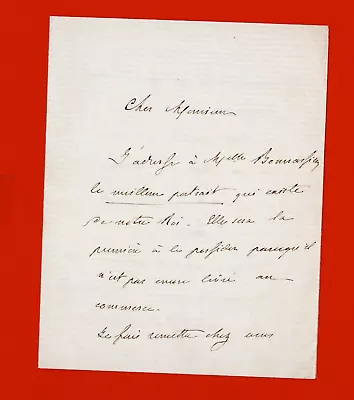 Cher Monsieur
J'adresse à Melle
le meilleur portrait qui existe
de notre Roi. Elle sera la
première à le posséder parcequ'il
n'est pas encore livré au
commerce.
Je fais remettre chez vous